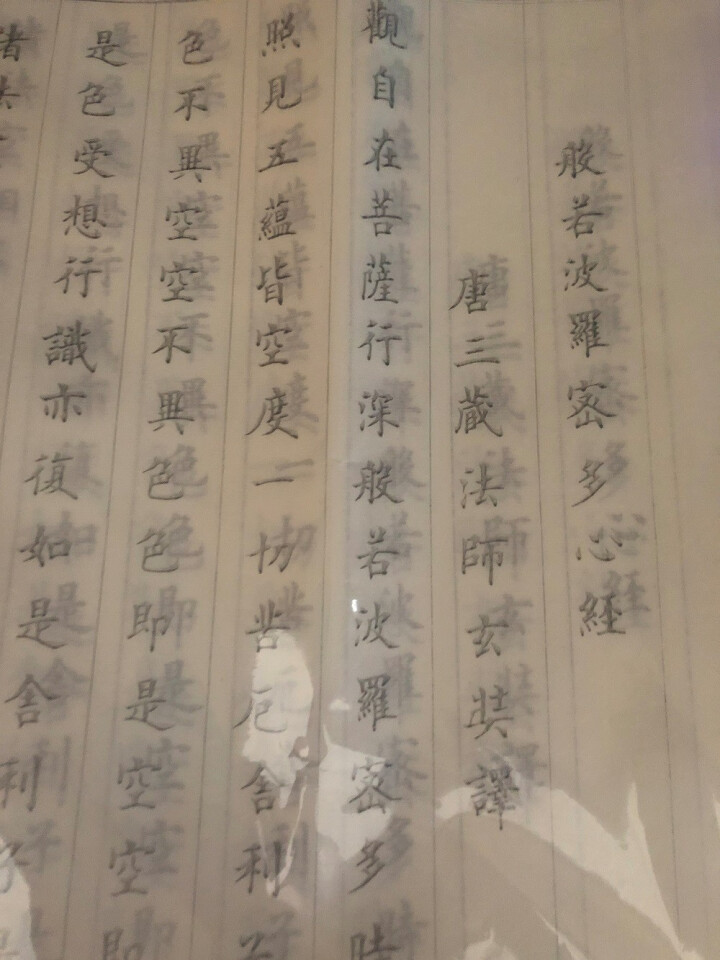 般若波羅密多心経
唐三蔵法師玄奘譯
觀自在菩薩行深般若波羅密多時
照見五蘊皆空度一切苦厄舍利子
色不異空空不異色色即是空空即
是色受想行識亦復如是舍利子是
諸法